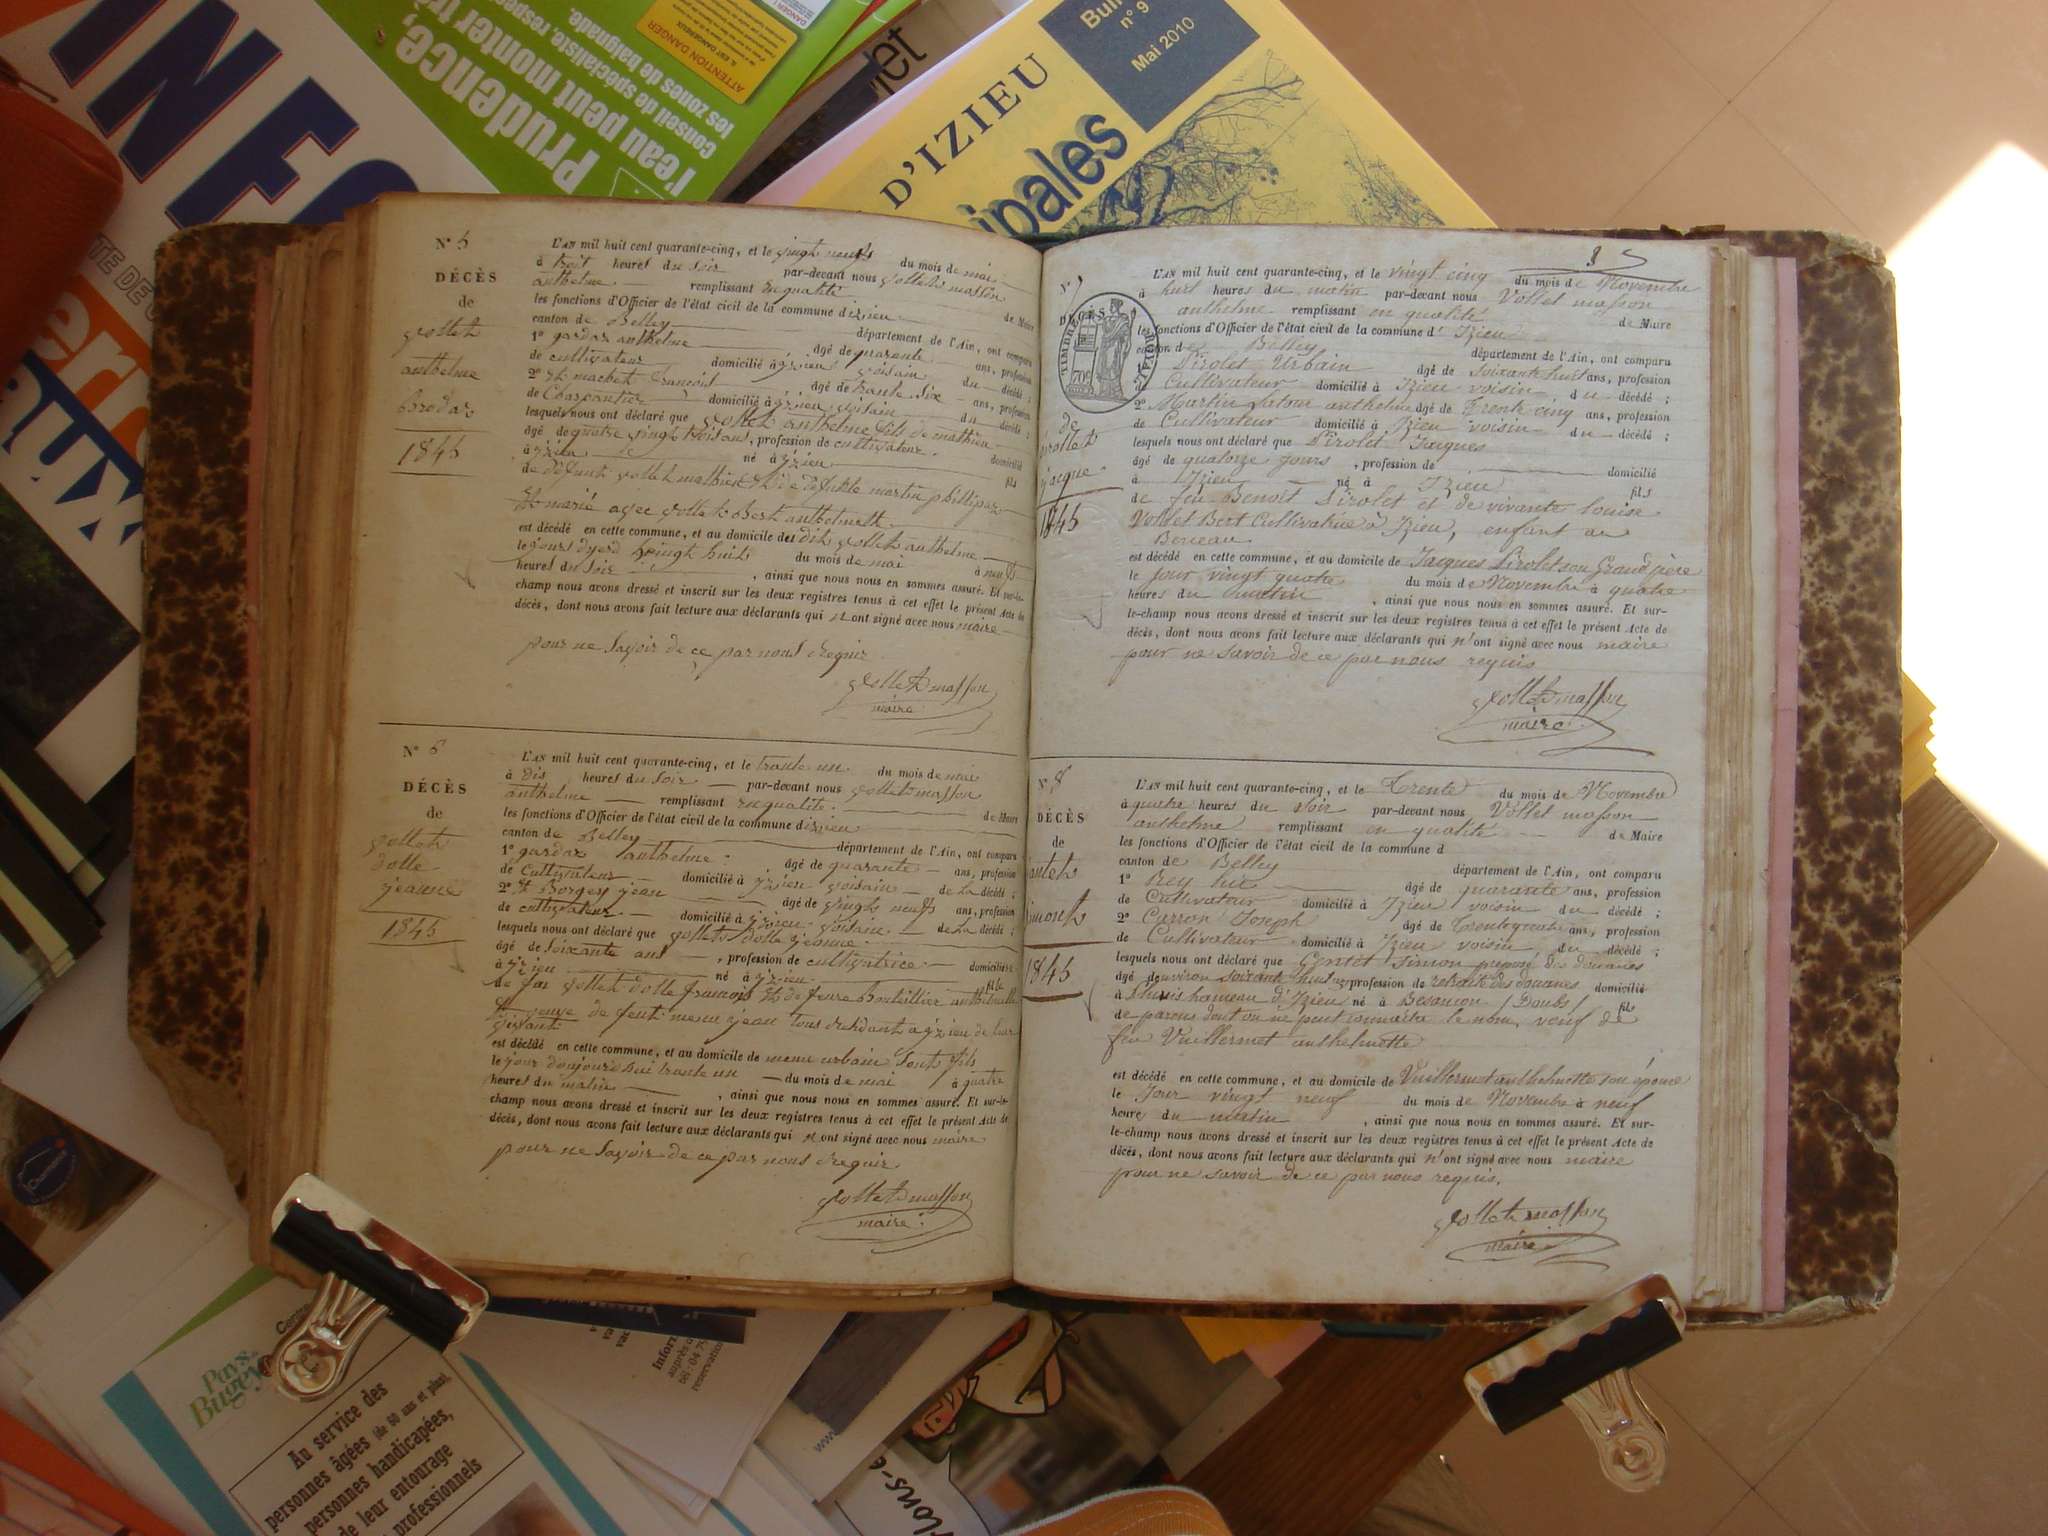 INFO
Prudence,
l'eau peut monter tr
conseil de spécialiste, respec
les zones de baignade.
ATTENTION DANGER
D'IZIEU
ipales
Bull
n° 9
Mai 2010
N° 5
DÉCÈS
de
Vollet
anthelme
1845
L'AN mil huit cent quarante-cinq, et le vingt neuf du mois de mai
à troit heures du soir par-devant nous Vollet masson
anthelme remplissant en qualité de Maire
les fonctions d'Officier de l'état civil de la commune dizieu
canton de Belley département de l'Ain, ont comparu
1° gardaz anthelme âgé de quarante ans, profession
de cultivateur domicilié à yzieu voisin du décédé ;
2° et machet francois, âgé de trante six ans, profession
de Charpantier domicilié à yzieu voisin du décédé ;
lesquels nous ont déclaré que Vollet anthelme fils de mathieu
âgé de quatre vingt troit ans, profession de cultivateur domicilié
à yzieu né à yzieu fils
de défunt Vollet mathieu et de défunte martin phillipaz
et marié avec Vollet Bert anthelmette
est décédé en cette commune, et au domicile du dit Vollet anthelme
le jourt dyerd vingt huit du mois de mai à neuf
heures du soir, ainsi que nous nous en sommes assuré. Et sur-le-
champ nous avons dressé et inscrit sur les deux registres tenus à cet effet le présent Acte de
décès, dont nous avons fait lecture aux déclarants qui n'ont signé avec nous maire
pour ne savoir de ce par nous requir
Vollet masson
maire
N° 6
DÉCÈS
de
Vollet
dolle
jeanne
1845
L'AN mil huit cent quarante-cinq, et le trante un du mois de mai
à dis heures du soir par-devant nous Vollet masson
anthelme remplissant en qualité de Maire
les fonctions d'Officier de l'état civil de la commune dizieu
canton de Belley département de l'Ain, ont comparu
1° gardaz anthelme âgé de quarante ans, profession
de Cultivateur domicilié à yzieu voisin de la décédé ;
2° et Borgey jean âgé de vingt neuf ans, profession
de cultivateur domicilié à yzieu voisin de La décédé ;
lesquels nous ont déclaré que Vollet dolle jeanne
âgé de soixante ans, profession de cultivatrice domicilié
à yzieu né à yzieu fille
de feu Vollet dolle francois et de feue Bouteillier anthelmette
et veuve de feut menu jean tous residant a yzieu de leur
vivant
est décédé en cette commune, et au domicile de menu urbain sont fils
le jour doujourdhui trante un du mois de mai à quatre
heures du matin, ainsi que nous nous en sommes assuré. Et sur-le-
champ nous avons dressé et inscrit sur les deux registres tenus à cet effet le présent Acte de
décès, dont nous avons fait lecture aux déclarants qui n'ont signé avec nous maire
pour ne savoir de ce par nous requir
Vollet masson
maire
N° 7
DÉCÈS
TIMBRE ROYAL
70c
de
irollet
jacque
1845
L'AN mil huit cent quarante-cinq, et le vingt cinq du mois de Novembre
à huit heures du matin par-devant nous Vollet masson
anthelme remplissant en qualité de Maire
les fonctions d'Officier de l'état civil de la commune d'Izieu
canton de Belley département de l'Ain, ont comparu
Pirolet Urbain âgé de soixante huit ans, profession
de Cultivateur domicilié à Izieu voisin du décédé ;
2° Martin Latour anthelme âgé de Trente cinq ans, profession
de Cultivateur domicilié à Izieu voisin du décédé ;
lesquels nous ont déclaré que Pirolet Jacques
âgé de quatorze jours, profession de domicilié
à Izieu né à Izieu fils
de feu Benoit Pirolet et de vivante louise
Vollet Bert Cultivatrice à Izieu, enfant au
Berceau
est décédé en cette commune, et au domicile de Jacques Pirolet son Grand père
le jour vingt quatre du mois de Novembre à quatre
heures du matin, ainsi que nous nous en sommes assuré. Et sur-
le-champ nous avons dressé et inscrit sur les deux registres tenus à cet effet le présent Acte de
décès, dont nous avons fait lecture aux déclarants qui n'ont signé avec nous maire
pour ne savoir de ce par nous requis
Vollet masson
maire
N° 8
DÉCÈS
de
simont
1845
L'AN mil huit cent quarante-cinq, et le Trente du mois de Novembre
à quatre heures du soir par-devant nous Vollet masson
anthelme remplissant en qualité de Maire
les fonctions d'Officier de l'état civil de la commune d
canton de Belley département de l'Ain, ont comparu
1° Rey âgé de quarante ans, profession
de Cultivateur domicilié à Izieu voisin du décédé ;
2° Carron Joseph âgé de Trente quatre ans, profession
de Cultivateur domicilié à Izieu voisin du décédé ;
lesquels nous ont déclaré que Simon preposé des douanes
âgé denviron soixante huit ans, profession de retraité des douanes domicilié
à hameau d'Izieu né à Besancon (Doubs) fils
de parens dont on ne peut connaitre le nom, veuf de
feu Vuillermet anthelmette
est décédé en cette commune, et au domicile de Vuillermet anthelmette son épouse
le Jour vingt neuf du mois de Novembre à neuf
heure du matin, ainsi que nous nous en sommes assuré. Et sur-
le-champ nous avons dressé et inscrit sur les deux registres tenus à cet effet le présent Acte de
décès, dont nous avons fait lecture aux déclarants qui n'ont signé avec nous maire
pour ne savoir de ce par nous requis.
Vollet masson
maire
Pays
Bugey
Au service des
personnes âgées (de 60 ans et plus),
personnes handicapées,
de leur entourage
professionnels